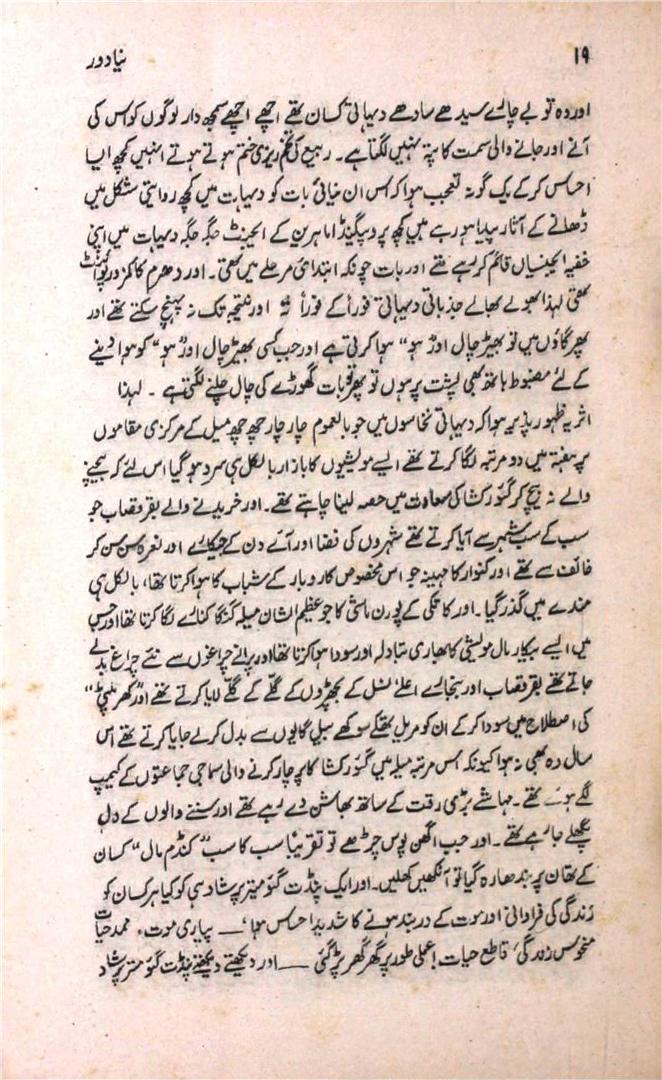 ۱۹ نیا دور
اور وہ تو بے چارے سیدھے سادھے دیہاتی کسان تھے اچھے اچھے سمجھ دار لوگوں کو اس کی
آنے اور جانے والی سمت کا پتہ نہیں لگتا ہے۔ ربیع کی تخم ریزی ختم ہوتے ہوتے انہیں کچھ ایسا
احساس کر کے یک گونہ تعجب ہوا کہ اس ان نیائی بات کو دیہات میں کچھ روایتی شکل میں
ڈھالنے کے آثار پیدا ہو رہے ہیں کچھ پروپیگنڈا ماہرین کے ایجنٹ جگہ جگہ دیہات میں اپنی
خفیہ ایجنسیاں قائم کر رہے تھے اور بات چونکہ ابتدائی مرحلے میں تھی۔ اور دھرم کا کمزور پوائنٹ
تھی لہذا بھولے بھالے جذباتی دیہاتی فوراً کے فوراً تہ اور نتیجہ تک نہ پہنچ سکتے تھے اور
پھر گاؤں میں تو بھیڑ چال اور ہو“ ہوا کرتی ہے اور جب کسی بھیڑ چال اور ہو“ کو ہوا دینے
کے لئے مضبوط ہاتھ بھی پشت پر ہوں تو پھر تو بات گھوڑے کی چال چلنے لگتی ہے ۔ لہذا
اثر یہ ظہور پذیر ہوا کہ دیہاتی نخاسوں میں جو بالعموم چار چار چھ چھ میل کے مرکزی مقاموں
پر ہفتہ میں دو مرتبہ لگا کرتے تھے ایسے مویشیوں کا بازار بالکل ہی سرد ہو گیا اس لئے کہ بیچنے
والے نہ بیچ کر گئو رکشا کی سعادت میں حصہ لینا چاہتے تھے۔ اور خریدنے والے بقر قصاب جو
سب کے سب شہر سے آیا کرتے تھے شہروں کی فضا اور آئے دن کے جیکارے اور نعرہ سن سن کر
خائف سے تھے اور کنوار کا مہینہ جو اس مخصوص کاروبار کے شباب کا ہوا کرتا تھا، بالکل ہی
مندے میں گذر گیا۔ اور کاتکی کے پورن ماشی کا جو عظیم الشان میلہ گنگا کنارے لگا کرتا تھا اور جس
میں ایسے بیکار مال مویشی کا بھاری تبادلہ اور سودا ہوا کرتا تھا اور پرانے چراغوں سے نئے چراغ بدلے
جاتے تھے بقر قصاب اور بنجارے اعلیٰ نسل کے بچھڑوں کے گلے کے گلے لایا کرتے تھے اور ”کھر پیپڑ“
کی اصطلاح میں سودا کر کے ان کو مریل تھکے سوکھے بیل گایوں سے بدل کر لے جایا کرتے تھے اس
سال وہ بھی نہ ہوا کیونکہ اس مرتبہ میلہ میں گئو رکشا کا پرچار کرنے والی سماجی جماعتوں کے کیمپ
لگے ہوئے تھے۔ مہاشے بڑی رقت کے ساتھ بھاشن دے رہے تھے اور سننے والوں کے دل
پگھلے جا رہے تھے۔ اور جب اگھن پوس چڑھے تو تقریباً سب کا سب ”کنڈم مال“ کسان
کے تھان پر بندھا رہ گیا تو آنکھیں کھلیں۔ اور ایک پنڈت گئو میتر پرشاد ہی کو کیا ہر کسان کو
زندگی کی فراوانی اور موت کے در بند ہونے کا شدید احساس ہوا، ـــ پیاری موت، ممد حیات
منحوس زندگی، قاطع حیات! عملی طور پر گھر گھر پڑ گئی ـــ اور دیکھتے دیکھتے پنڈت گئو متر پرشاد